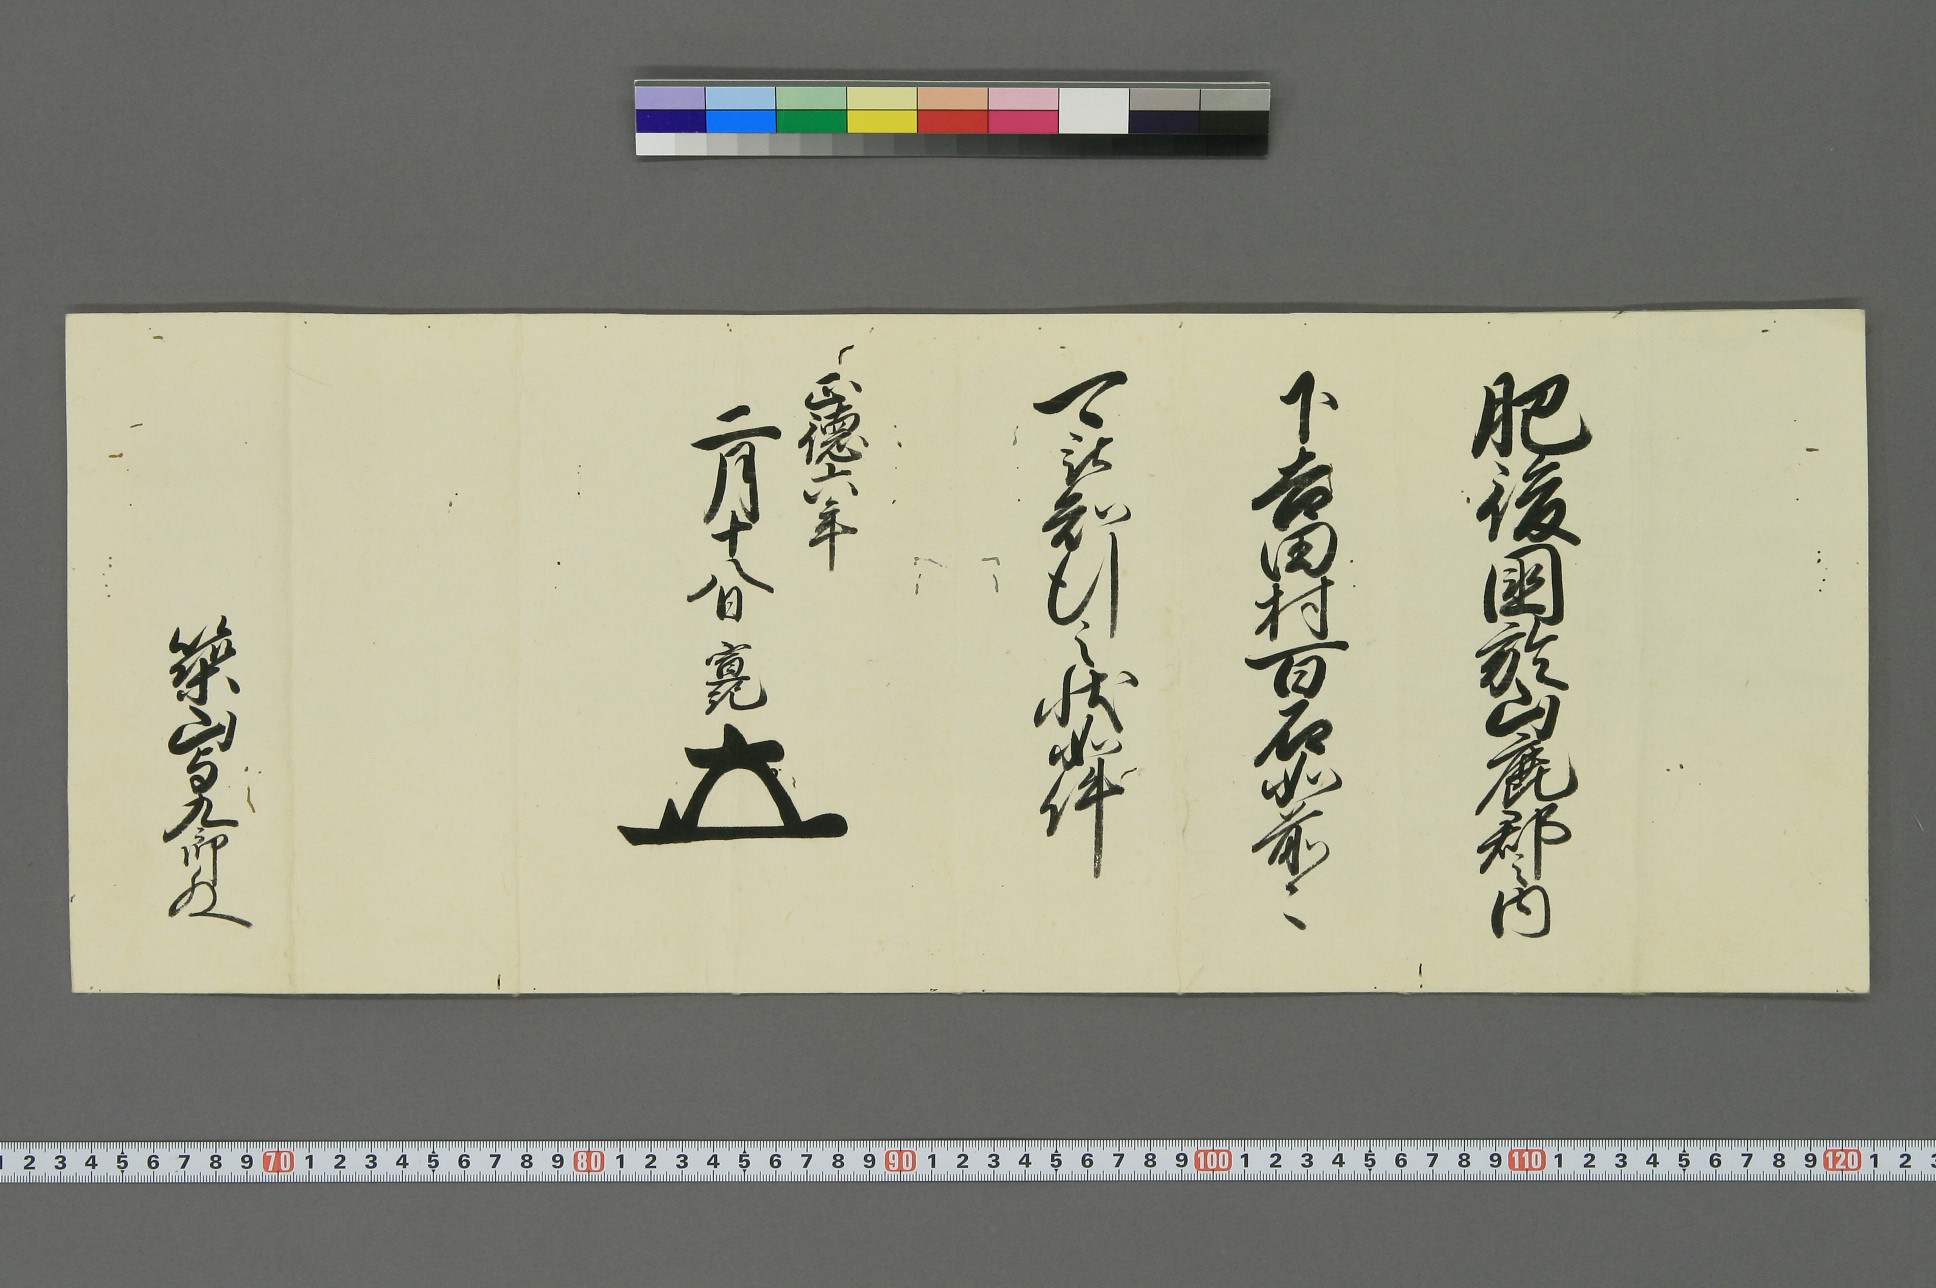 肥後國於山鹿郡之内
下吉田村百石如前々
可被知行之状如件
正徳六年
二月十八日 宣紀
築山与九郎殿
1 2 3 4 5 6 7 8 9 70 1 2 3 4 5 6 7 8 9 80 1 2 3 4 5 6 7 8 9 90 1 2 3 4 5 6 7 8 9 100 1 2 3 4 5 6 7 8 9 110 1 2 3 4 5 6 7 8 9 120 1 2 3